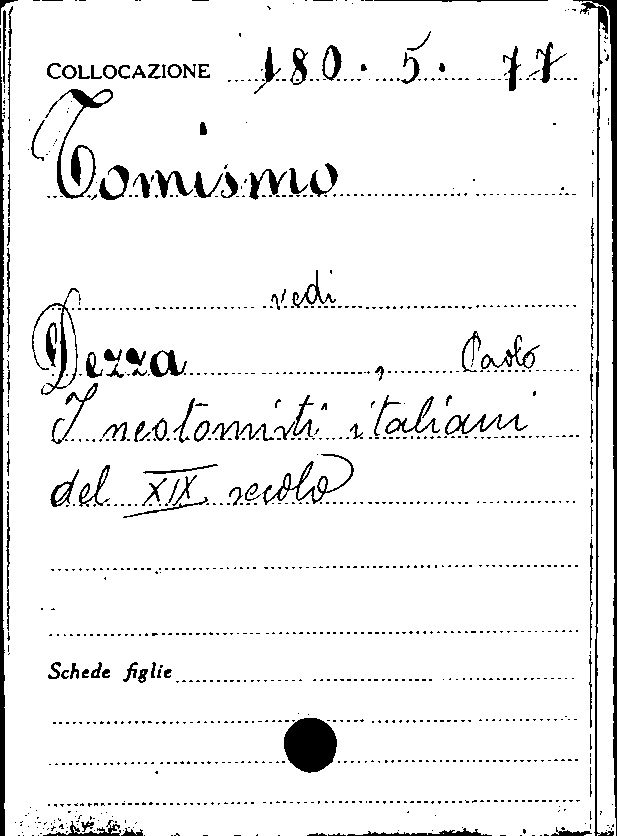 COLLOCAZIONE 180. 5. 77
Tomismo
vedi
Dezza, Paolo
I neotomisti italiani
del XIX secolo
Schede figlie